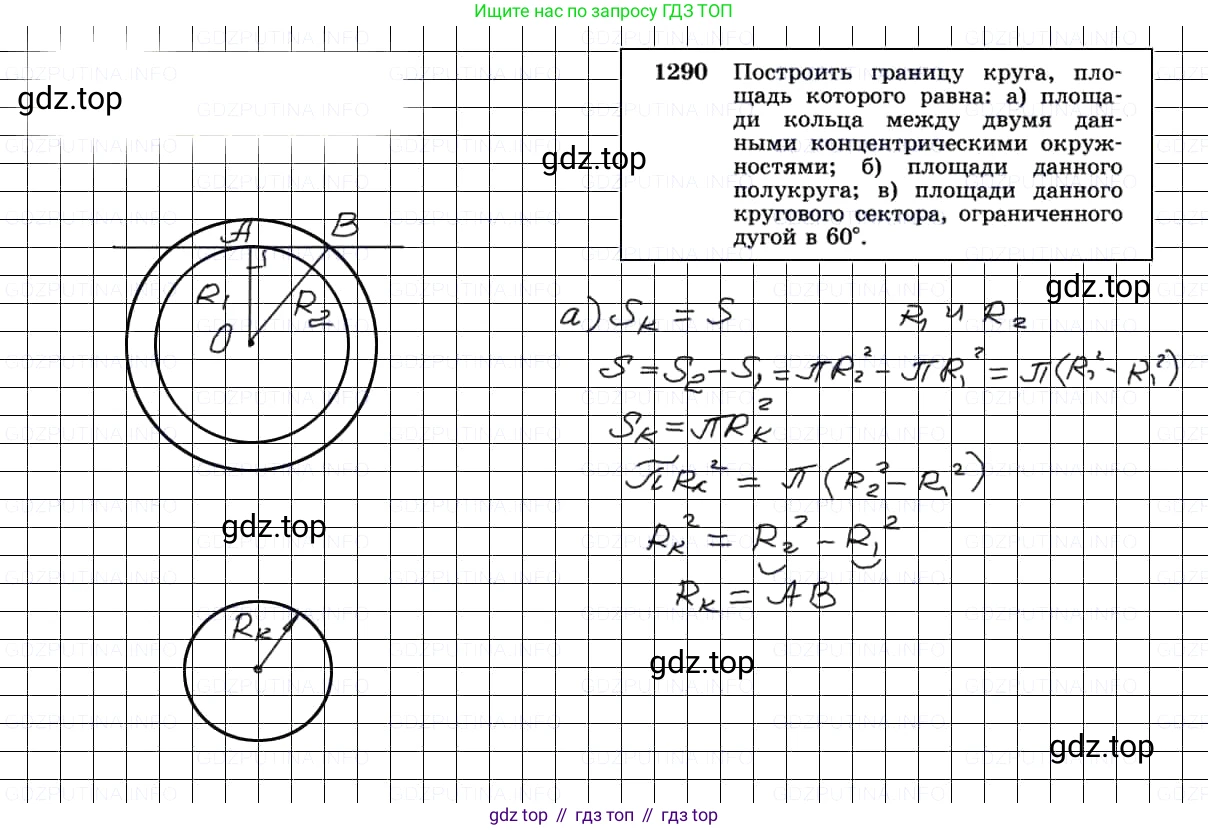 Ищите нас по запросу ГДЗ ТОП
1290 Построить границу круга, пло-
щадь которого равна: а) площа-
ди кольца между двумя дан-
ными концентрическими окруж-
ностями; б) площади данного
полукруга; в) площади данного
кругового сектора, ограниченного
дугой в 60°.
gdz.top
gdz.top
A B
R₁ R₂
O
gdz.top
а) Sк = S R₁ и R₂
S = S₂ - S₁ = πR₂² - πR₁² = π(R₂² - R₁²)
Sк = πRк²
πRк² = π(R₂² - R₁²)
gdz.top
Rк² = R₂² - R₁²
Rк = AB
Rк
gdz.top
gdz.top
gdz.top // гдз топ // gdz top